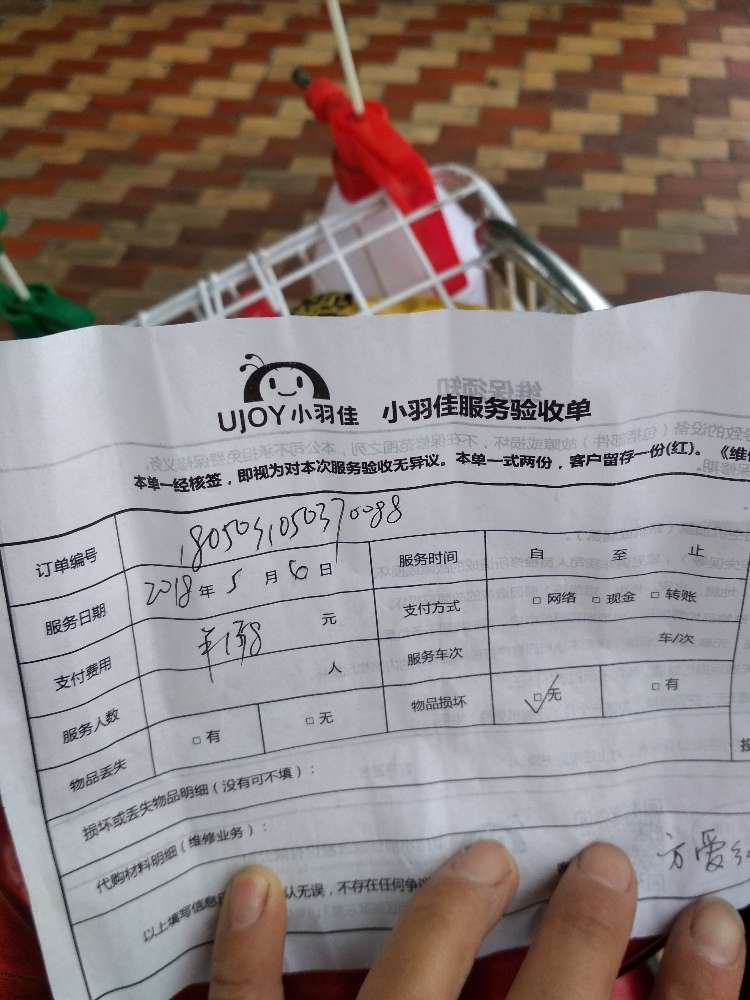 UJOY小羽佳 小羽佳服务验收单
本单一经核签，即视为对本次服务验收无异议。本单一式两份，客户留存一份(红)。《维
订单编号 1805031050370088
服务日期 2018年5月6日 服务时间 自 至 止
支付费用 元 支付方式 □网络 □现金 □转账
服务人数 人 服务车次 车/次
物品丢失 □有 □无 物品损坏 □无 □有
损坏或丢失物品明细（没有可不填）：
代购材料明细（维修业务）：
以上填写信息 认无误，不存在任何争议
方爱